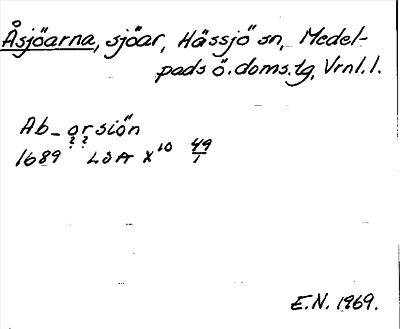 Åsjöarna, sjöar, Hässjö sn, Medel-
pads ö. doms.tg, Vrnl. l.
Ab_orsiön
? ?
1689 LSA X¹⁰ 49/1
E.N. 1969.